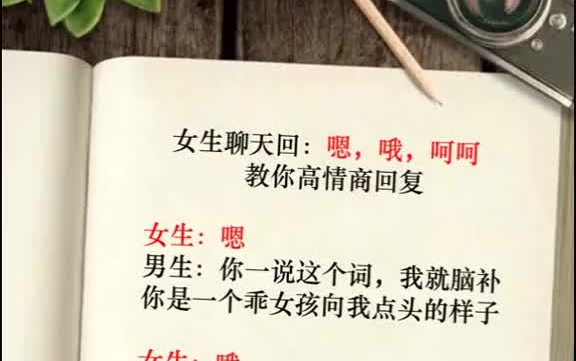 女生聊天回：嗯，哦，呵呵
教你高情商回复
女生：嗯
男生：你一说这个词，我就脑补
你是一个乖女孩向我点头的样子
女生：哦